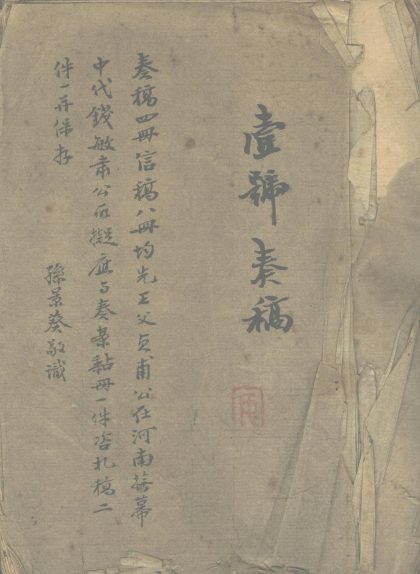 壹號奏稿
奏稿四冊信稿八冊均先王父貞甫公在河南撫幕
中代錢敏肅公所擬應与奏案黏冊一件咨札稿二
件一并保存
孫景葵敬識